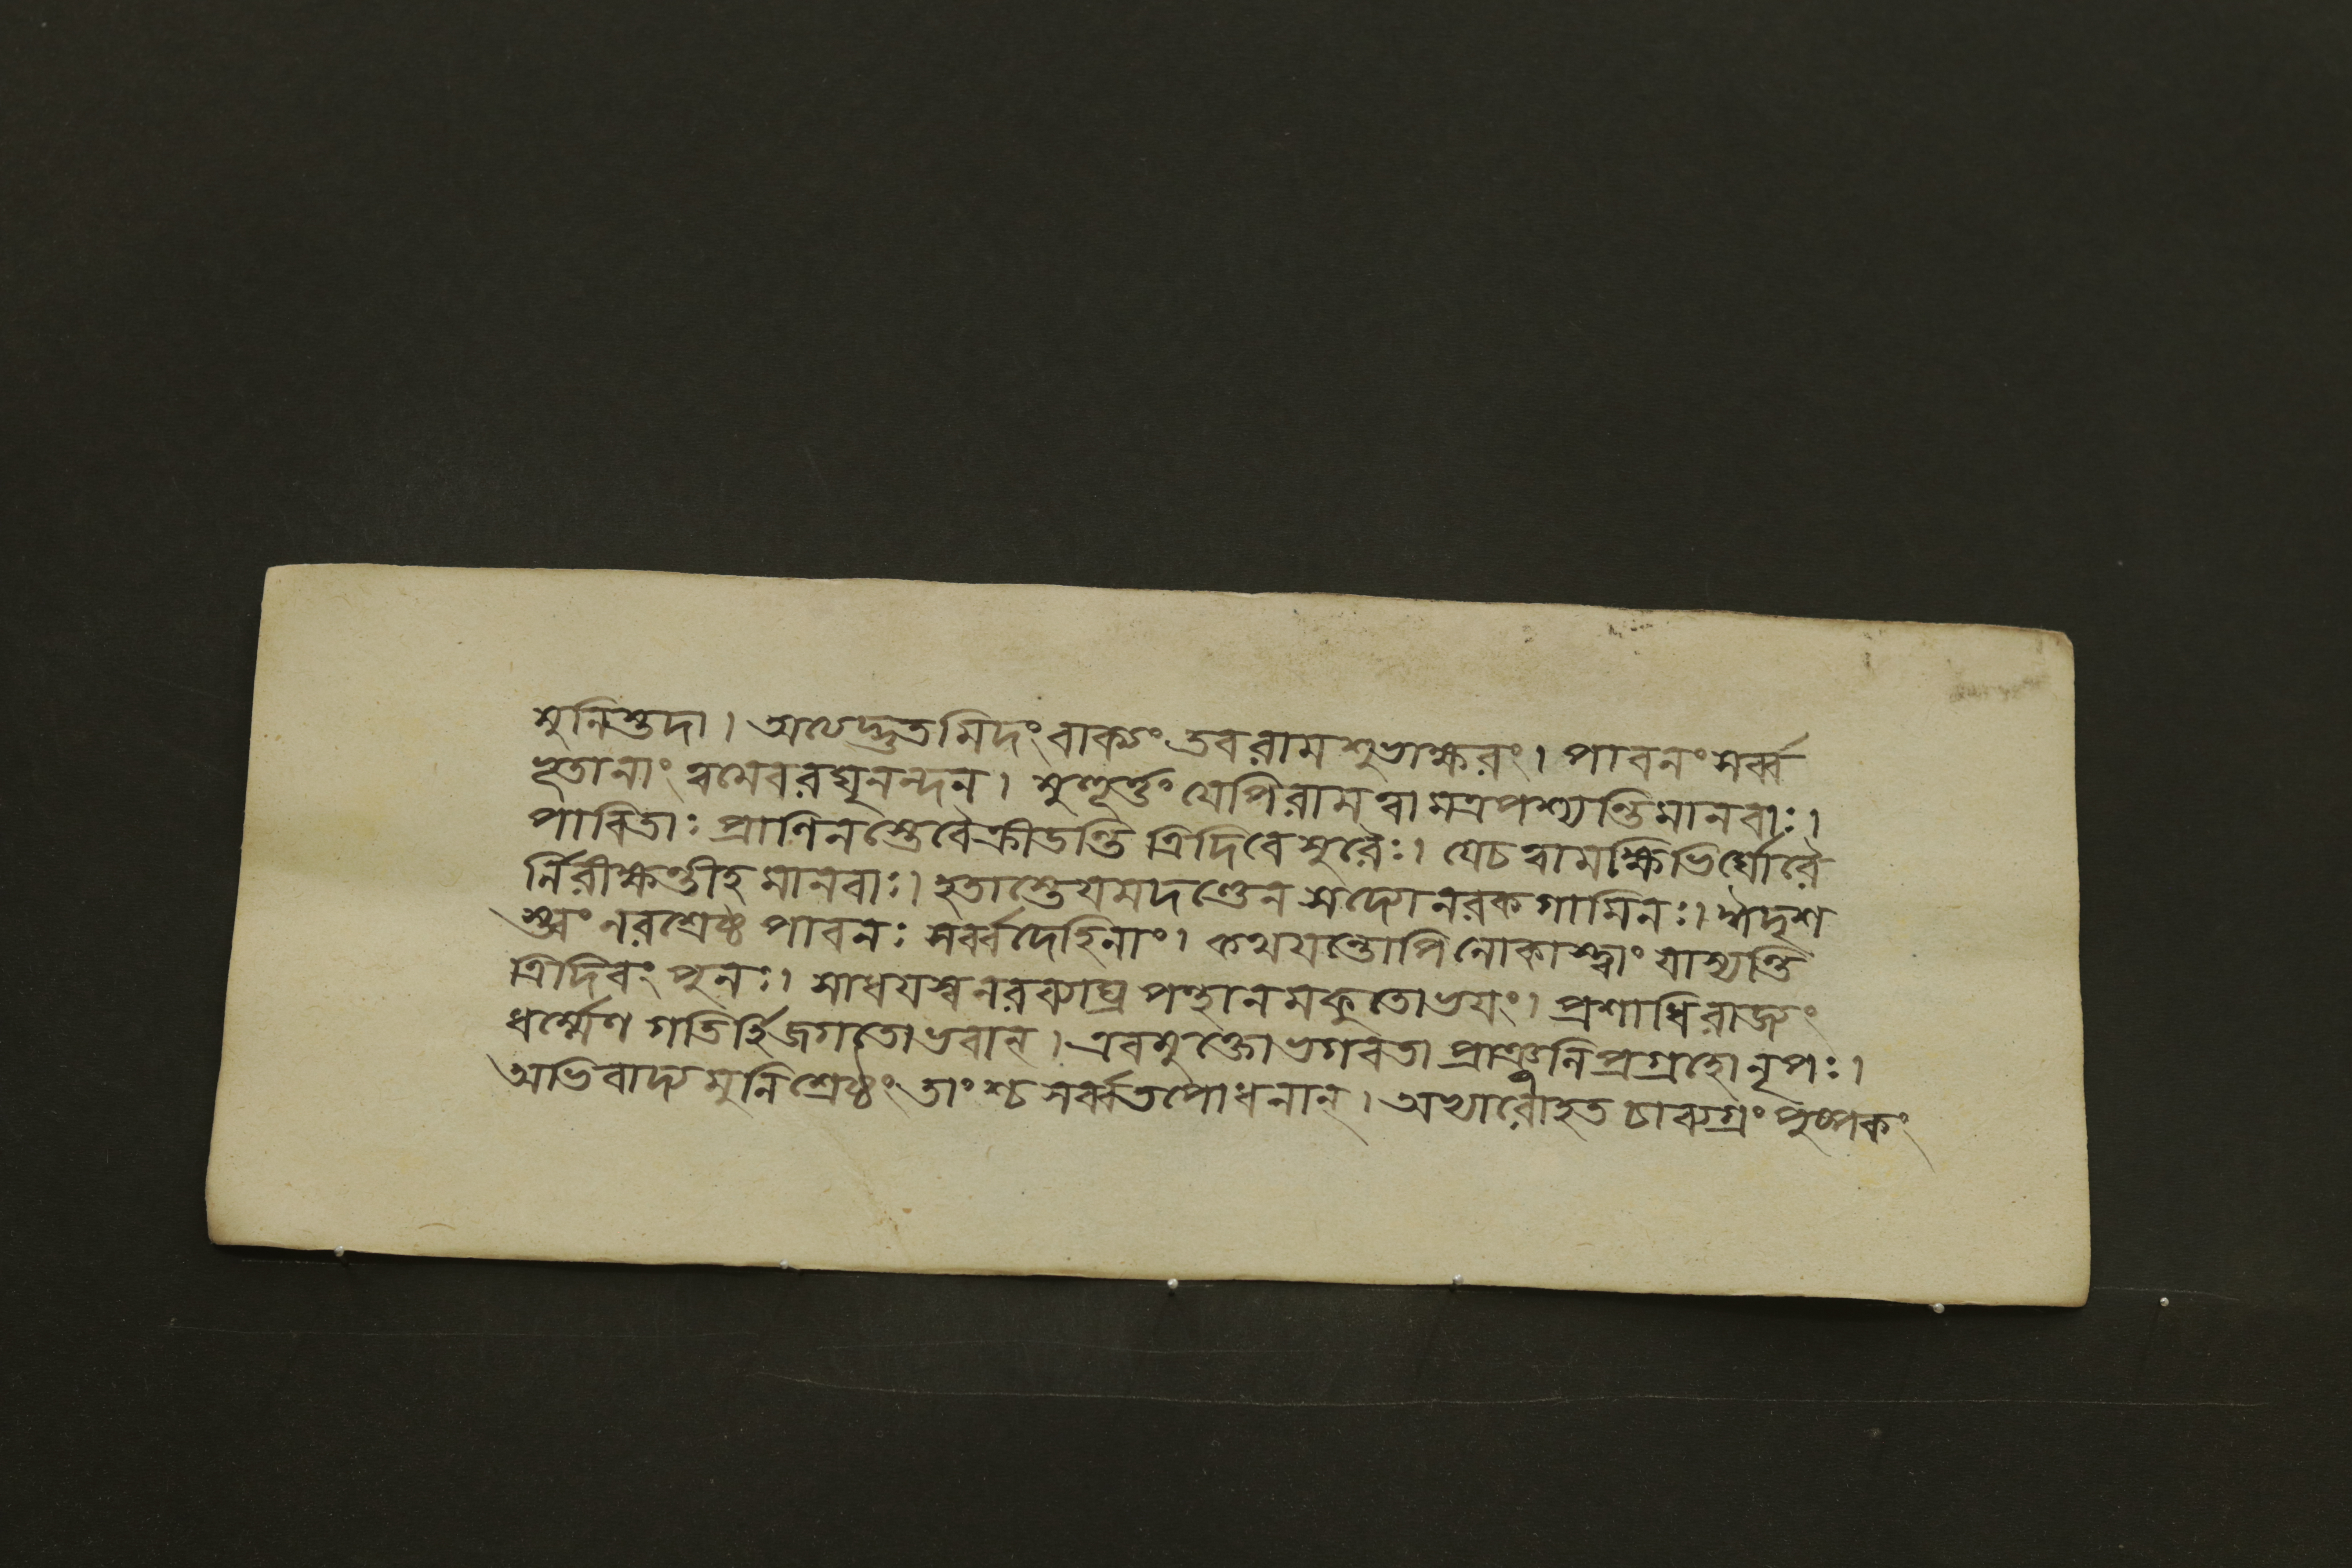 মুনিস্তদা । অত্যেদ্ভুতমিদং বাক্যং তব রাম শুভাক্ষরং । পাবনং সর্ব্ব
ভূতানাং ত্বমেব রঘুনন্দন । মুহূর্ত্তং যেপি রাম ত্বামত্র পশ্যন্তি মানবাঃ ।
পাবিতাঃ প্রাণিনস্তে বৈ ক্রীডন্তি ত্রিদিবে সুরৈঃ । যে চ ত্বামক্ষিভির্ঘোরৈ
র্নিরীক্ষন্তীহ মানবাঃ । হতাস্তে যমদণ্ডেন সদ্যো নরকগামিনঃ । ঈদৃশ
স্ত্বং নরশ্রেষ্ঠ পাবনঃ সর্ব্বদেহিনাং । কথয়ন্তোপি লোকাস্ত্বাং যাস্যন্তি
ত্রিদিবং পুনঃ । সাধয়স্ব নরব্যাঘ্র পন্থানমকুতোভয়ং । প্রশাধি রাজ্যং
ধর্ম্মেণ গতির্হি জগতো ভবান্ । এবমুক্তো ভগবতা প্রাঞ্জলিপ্রগ্রহো নৃপঃ ।
অভিবাদ্য মুনিশ্রেষ্ঠং তাংশ্চ সর্ব্বতপোধনান্ । অথারোহত চাব্যগ্রং পুষ্পকং